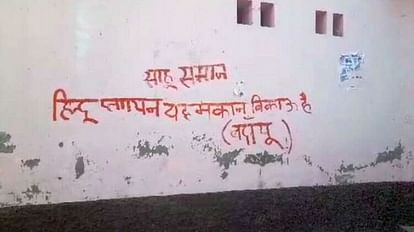 साहू समाज
हिन्दू पलायन यह मकान बिकाऊ है
(बदायू)